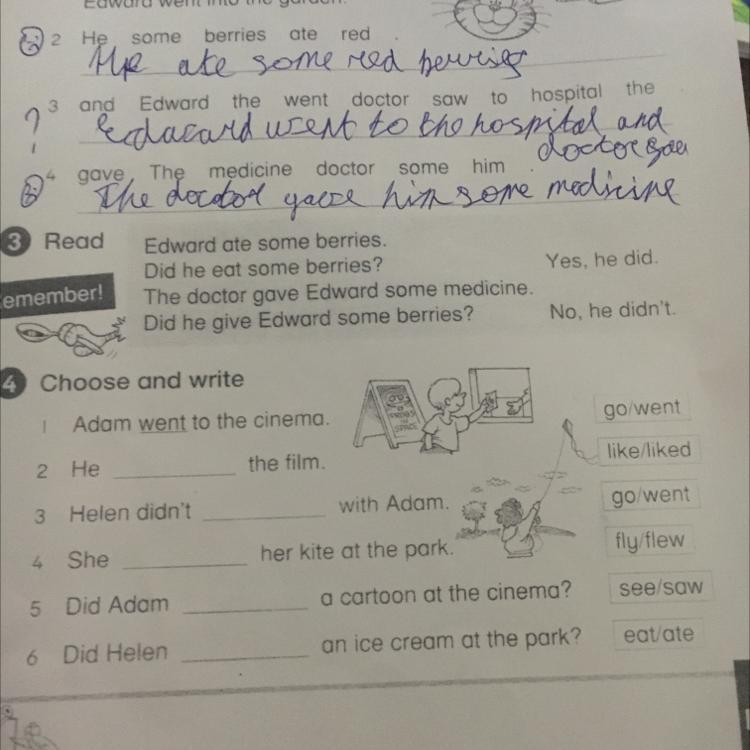 Edward went into the garden.
2 He some berries ate red .
He ate some red berries
3 and Edward the went doctor saw to hospital the
Edacard went to the hospital and
doctor saw
4 gave The medicine doctor some him .
The doctor gave him some medicine
3 Read
Edward ate some berries.
Did he eat some berries? Yes, he did.
emember!
The doctor gave Edward some medicine.
Did he give Edward some berries? No, he didn't.
4 Choose and write
1 Adam went to the cinema. go/went
2 He ____ the film. like/liked
3 Helen didn't ____ with Adam. go/went
4 She ____ her kite at the park. fly/flew
5 Did Adam ____ a cartoon at the cinema? see/saw
6 Did Helen ____ an ice cream at the park? eat/ate